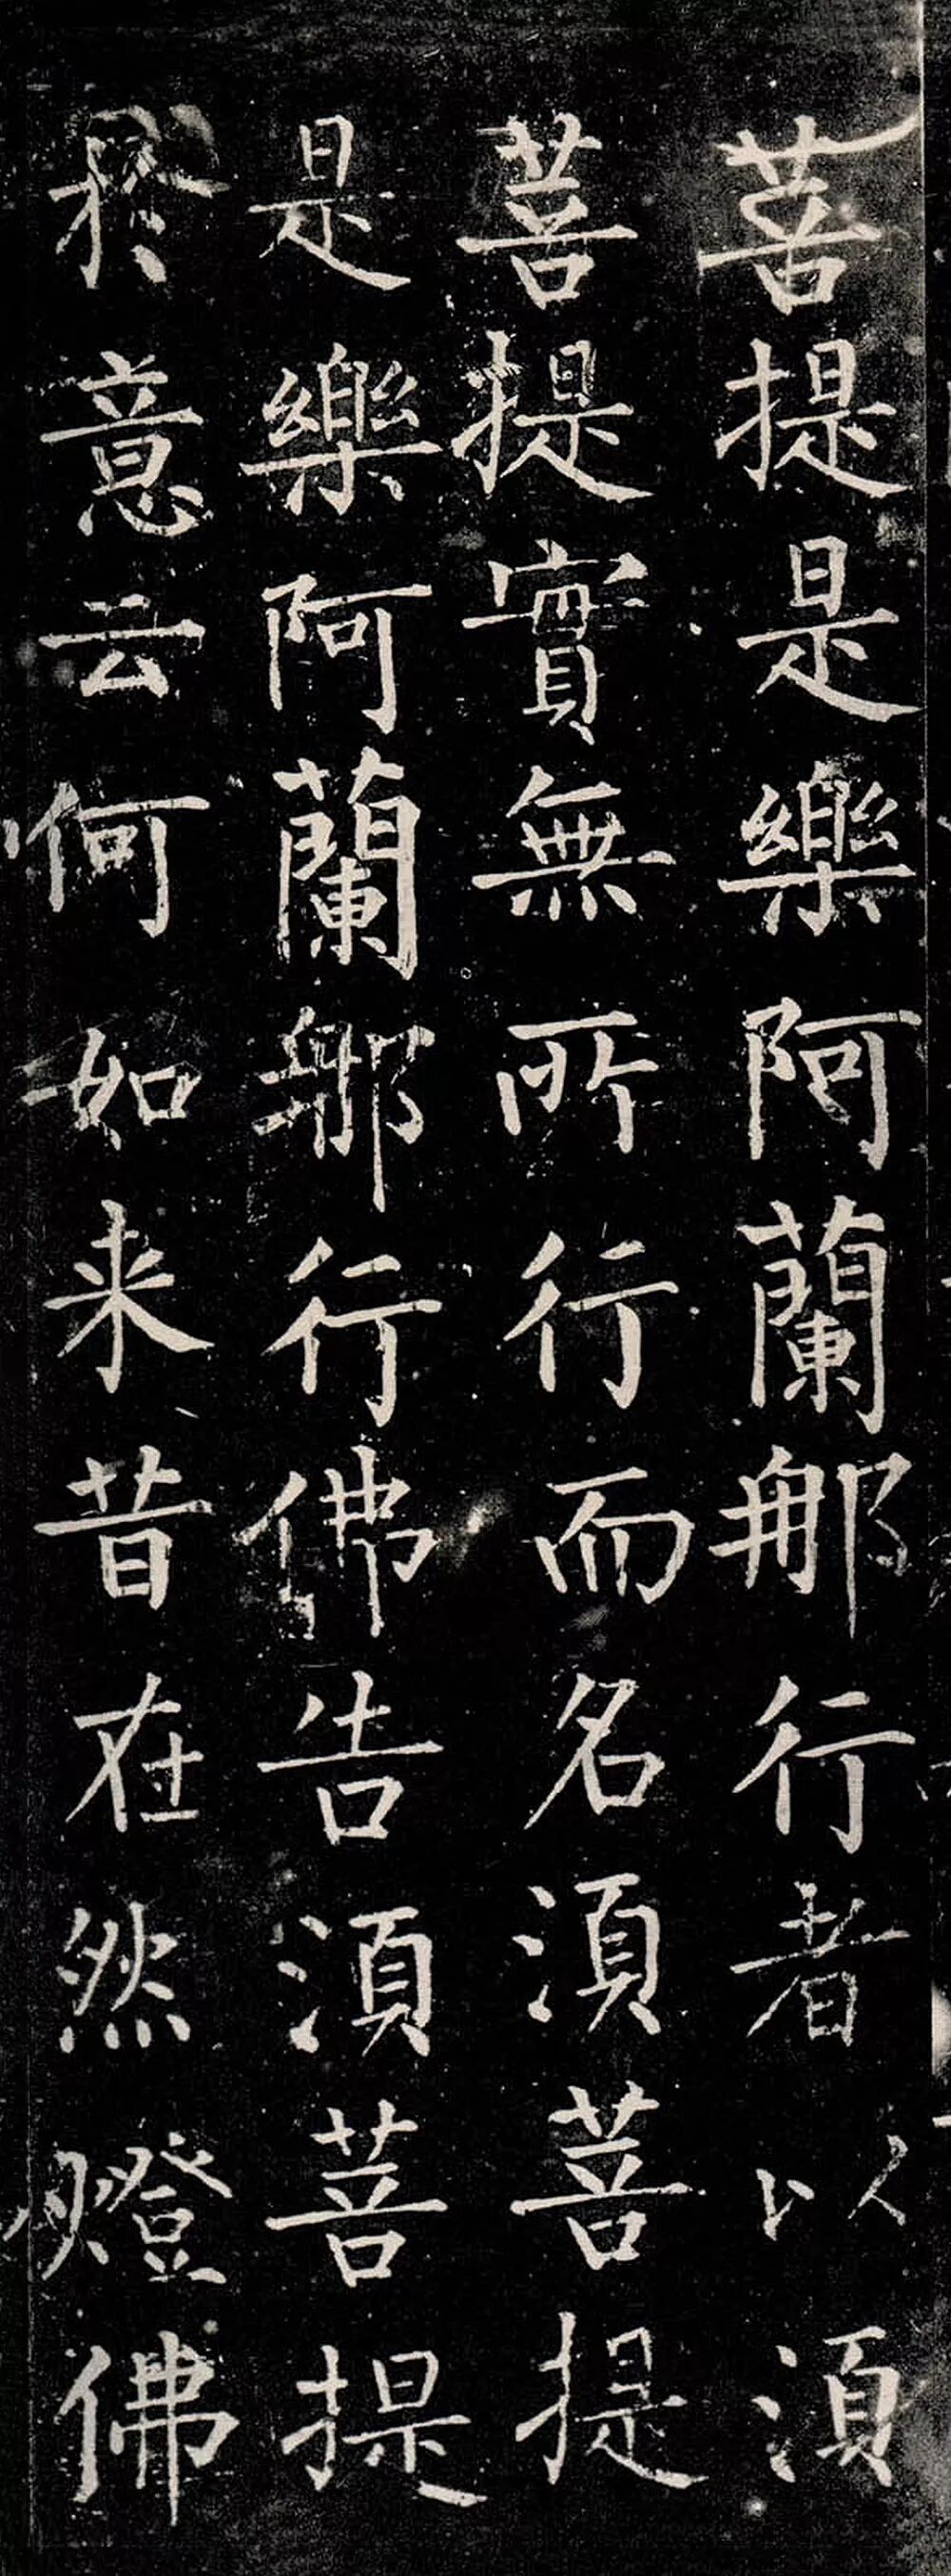 菩提是樂阿蘭那行者以須
菩提實無所行而名須菩提
是樂阿蘭那行佛告須菩提
於意云何如来昔在然燈佛